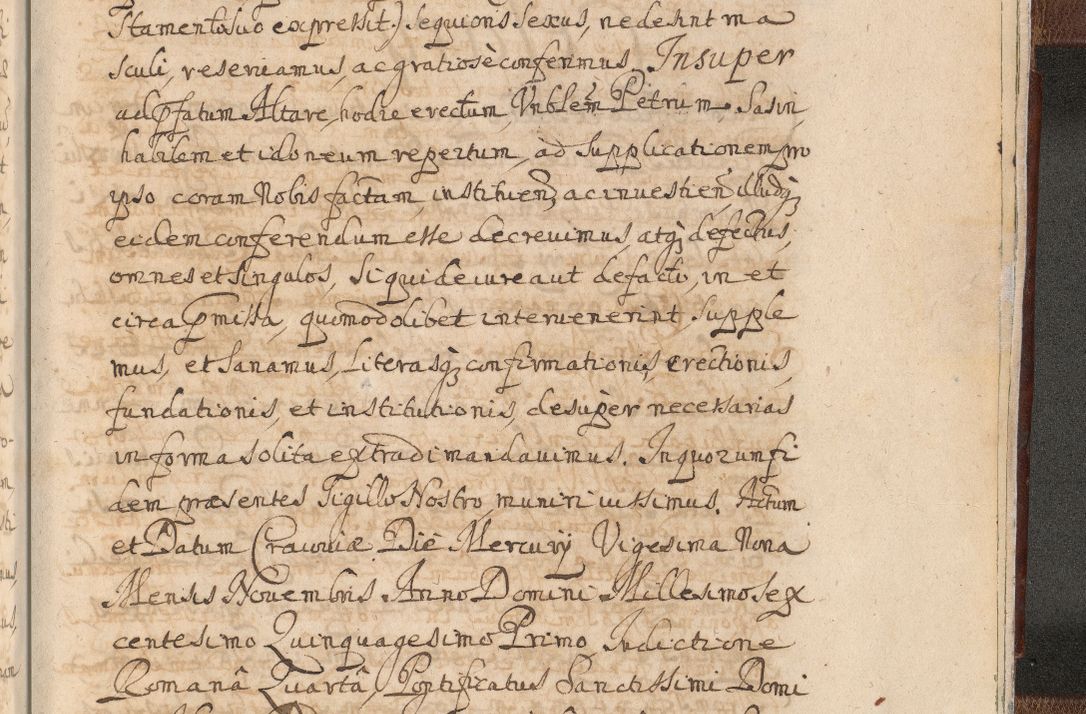 stamento suo expressit) sequioris sexus, ne desint ma
sculi, reseruamus, ac gratiosè conferimus. Insuper
ad p̄fatum Altare, hodie erectum, Vnblem Petrum Sasin
habilem et idoneum repertum, ad Supplicationem pro
ipso coram Nobis factam, instituen̄, ac inuestien̄, illudq;
eidem conferendum esse decreuimus, atq; defectus,
omnes et singulos, si qui de iure aut de facto, in et
circa p̄missa, quomodolibet interuenerint, supple
mus, et sanamus, Literasq; confirmationis, erectionis,
fundationis, et institutionis, desuper necessarias
in forma solita extradi mandauimus. In quorum fi
dem præsentes Sigillo Nostro muniri iussimus. Actum
et Datum Cracouiæ Die Mercurij Vigesima Nona
Mensis Nouembris Anno Domini Millesimo Sex
centesimo Quinquagesimo Primo, Indictione
Romanâ Quartâ, Pontificatus Sanctissimi Domi